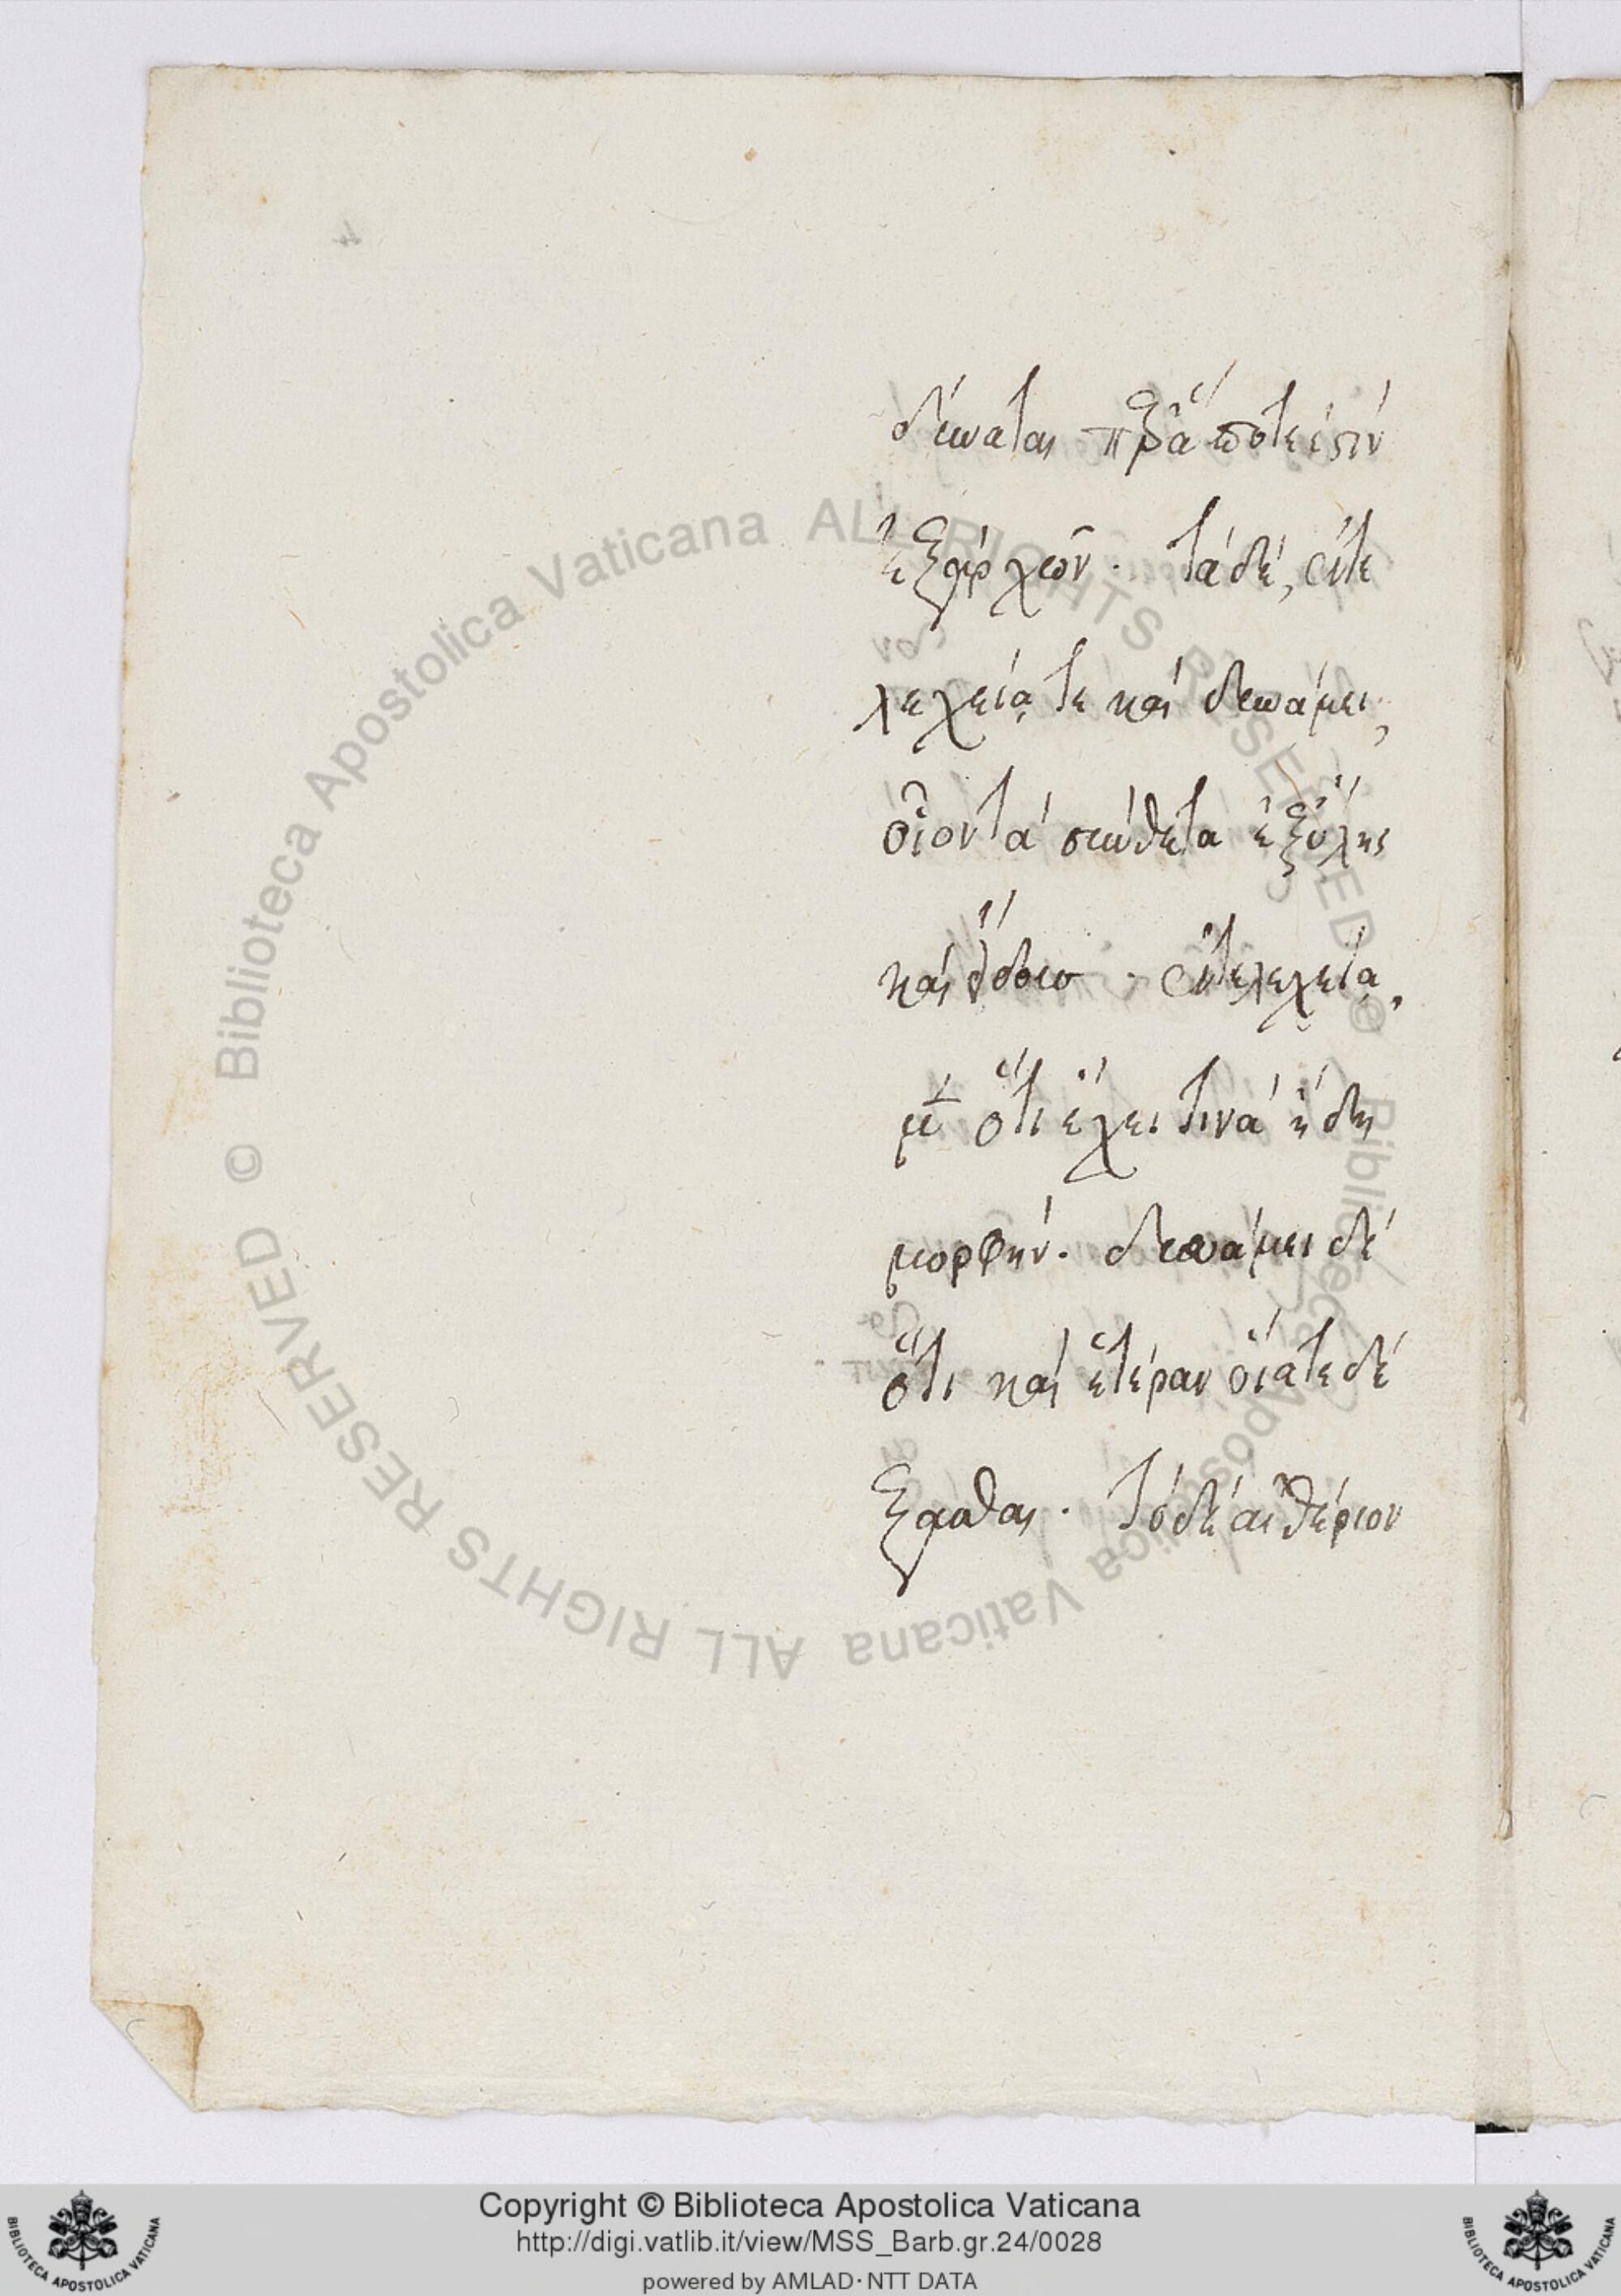 δύναται πρᾶξαι ἅ ποτέ ἐστιν
ἐξάρχων. τὰ δὲ, ἐντε
λεχείᾳ τε καὶ δυνάμει,
οἷον τὰ σύνθετα ἐξ ὕλης
καὶ εἴδους. ἐντελεχείᾳ,
μὲν ὅτι ἔχει τινὰ ἤδη
μορφὴν. δυνάμει δὲ
ὅτι καὶ ἑτέραν οἷά τε δέ
ξασθαι. τὸ δὲ αἰθέριον
Biblioteca Apostolica Vaticana ALL RIGHTS RESERVED © Biblioteca Apostolica Vaticana ALL RIGHTS RESERVED ©
Copyright © Biblioteca Apostolica Vaticana
http://digi.vatlib.it/view/MSS_Barb.gr.24/0028
powered by AMLAD·NTT DATA
BIBLIOTECA APOSTOLICA VATICANA
BIBLIOTECA APOSTOLICA VATICANA